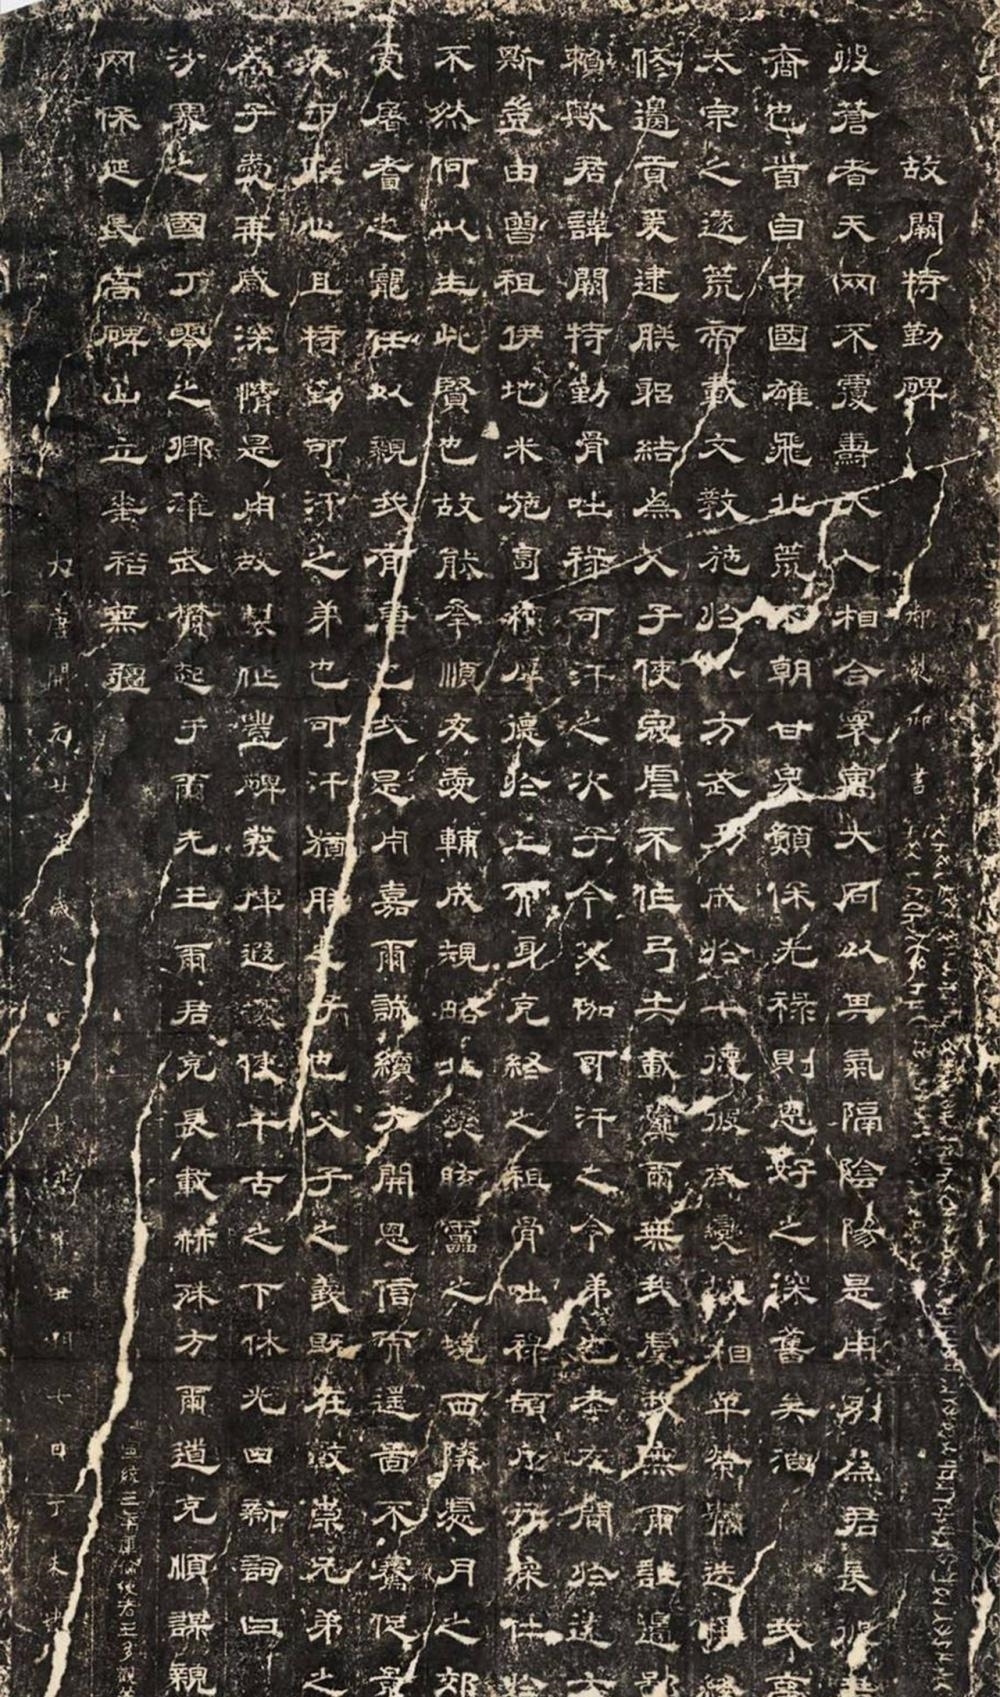 故闕特勤碑 御製御書
彼蒼者天网不覆燾天人相合寰寓大同以其氣隔陰陽是用別為君長彼
裔也首自中國雄飛北荒來朝甘泉願保光祿則恩好之深舊矣洎我高
太宗之遂荒帝載文教施於八方武功成於七德彼或變故相革榮號迭稱終
修邊貢爰逮朕躬結為父子使寇虐不作弓矢載櫜爾無我虞我無爾詐邊鄙
賴歟君諱闕特勤骨咄祿可汗之次子今苾伽可汗之令弟也孝友聞於遠方
斯豈由曾祖伊地米施匐積厚德於上而身克終之祖骨咄祿頡斤行深仁於
不然何以生此賢也故能承順友愛輔成規略北燮眩靁之境西鄰處月之郊
受屠耆之寵任以親我有唐也我是用嘉爾誠績大開恩信而遙圖不騫促景
疚于朕心且特勤可汗之弟也可汗猶朕之子也父子之義既在敦崇兄弟之
為子愛再感深情是用故製作豐碑發揮遐壤使千古之下休光日新詞曰
沙塞之國丁零之鄉雄武鬱起于爾先王爾君克長載赫殊方爾道克順謀親
网保延長高碑山立垂裕無疆
宣統三年庫倫使者三多觀
大唐開元廿年歲次壬申十月辛丑朔七日丁未建